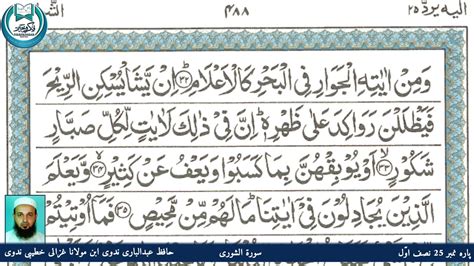 اليه يرد ٢٥
٤٨٨
وَمِنْ اٰيٰتِهِ الْجَوَارِ فِي الْبَحْرِ كَالْاَعْلَامِ ۝٣٢ اِنْ يَّشَاْ يُسْكِنِ الرِّيْحَ
فَيَظْلَلْنَ رَوَاكِدَ عَلٰى ظَهْرِهٖ ؕ اِنَّ فِيْ ذٰلِكَ لَاٰيٰتٍ لِّكُلِّ صَبَّارٍ
شَكُوْرٍ ۝٣٣ اَوْ يُوْبِقْهُنَّ بِمَا كَسَبُوْا وَيَعْفُ عَنْ كَثِيْرٍ ۝٣٤ وَّيَعْلَمَ
الَّذِيْنَ يُجَادِلُوْنَ فِيْۤ اٰيٰتِنَا ؕ مَا لَهُمْ مِّنْ مَّحِيْصٍ ۝٣٥ فَمَاۤ اُوْتِيْتُمْ
پارہ نمبر 25 نصف اوّل
سورة الشورى
حافظ عبدالباری ندوی ابن مولانا غزالی خطیبی ندوی